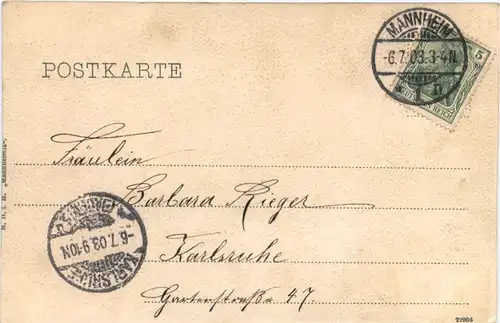 MANNHEIM
-6.7.03.3-4N.
5
REICH
POSTKARTE
Fräulein
Barbara Rieger
Karlsruhe
Gartenstraße 47.
-6.7.03.9-10N
KARLSRUHE
22904